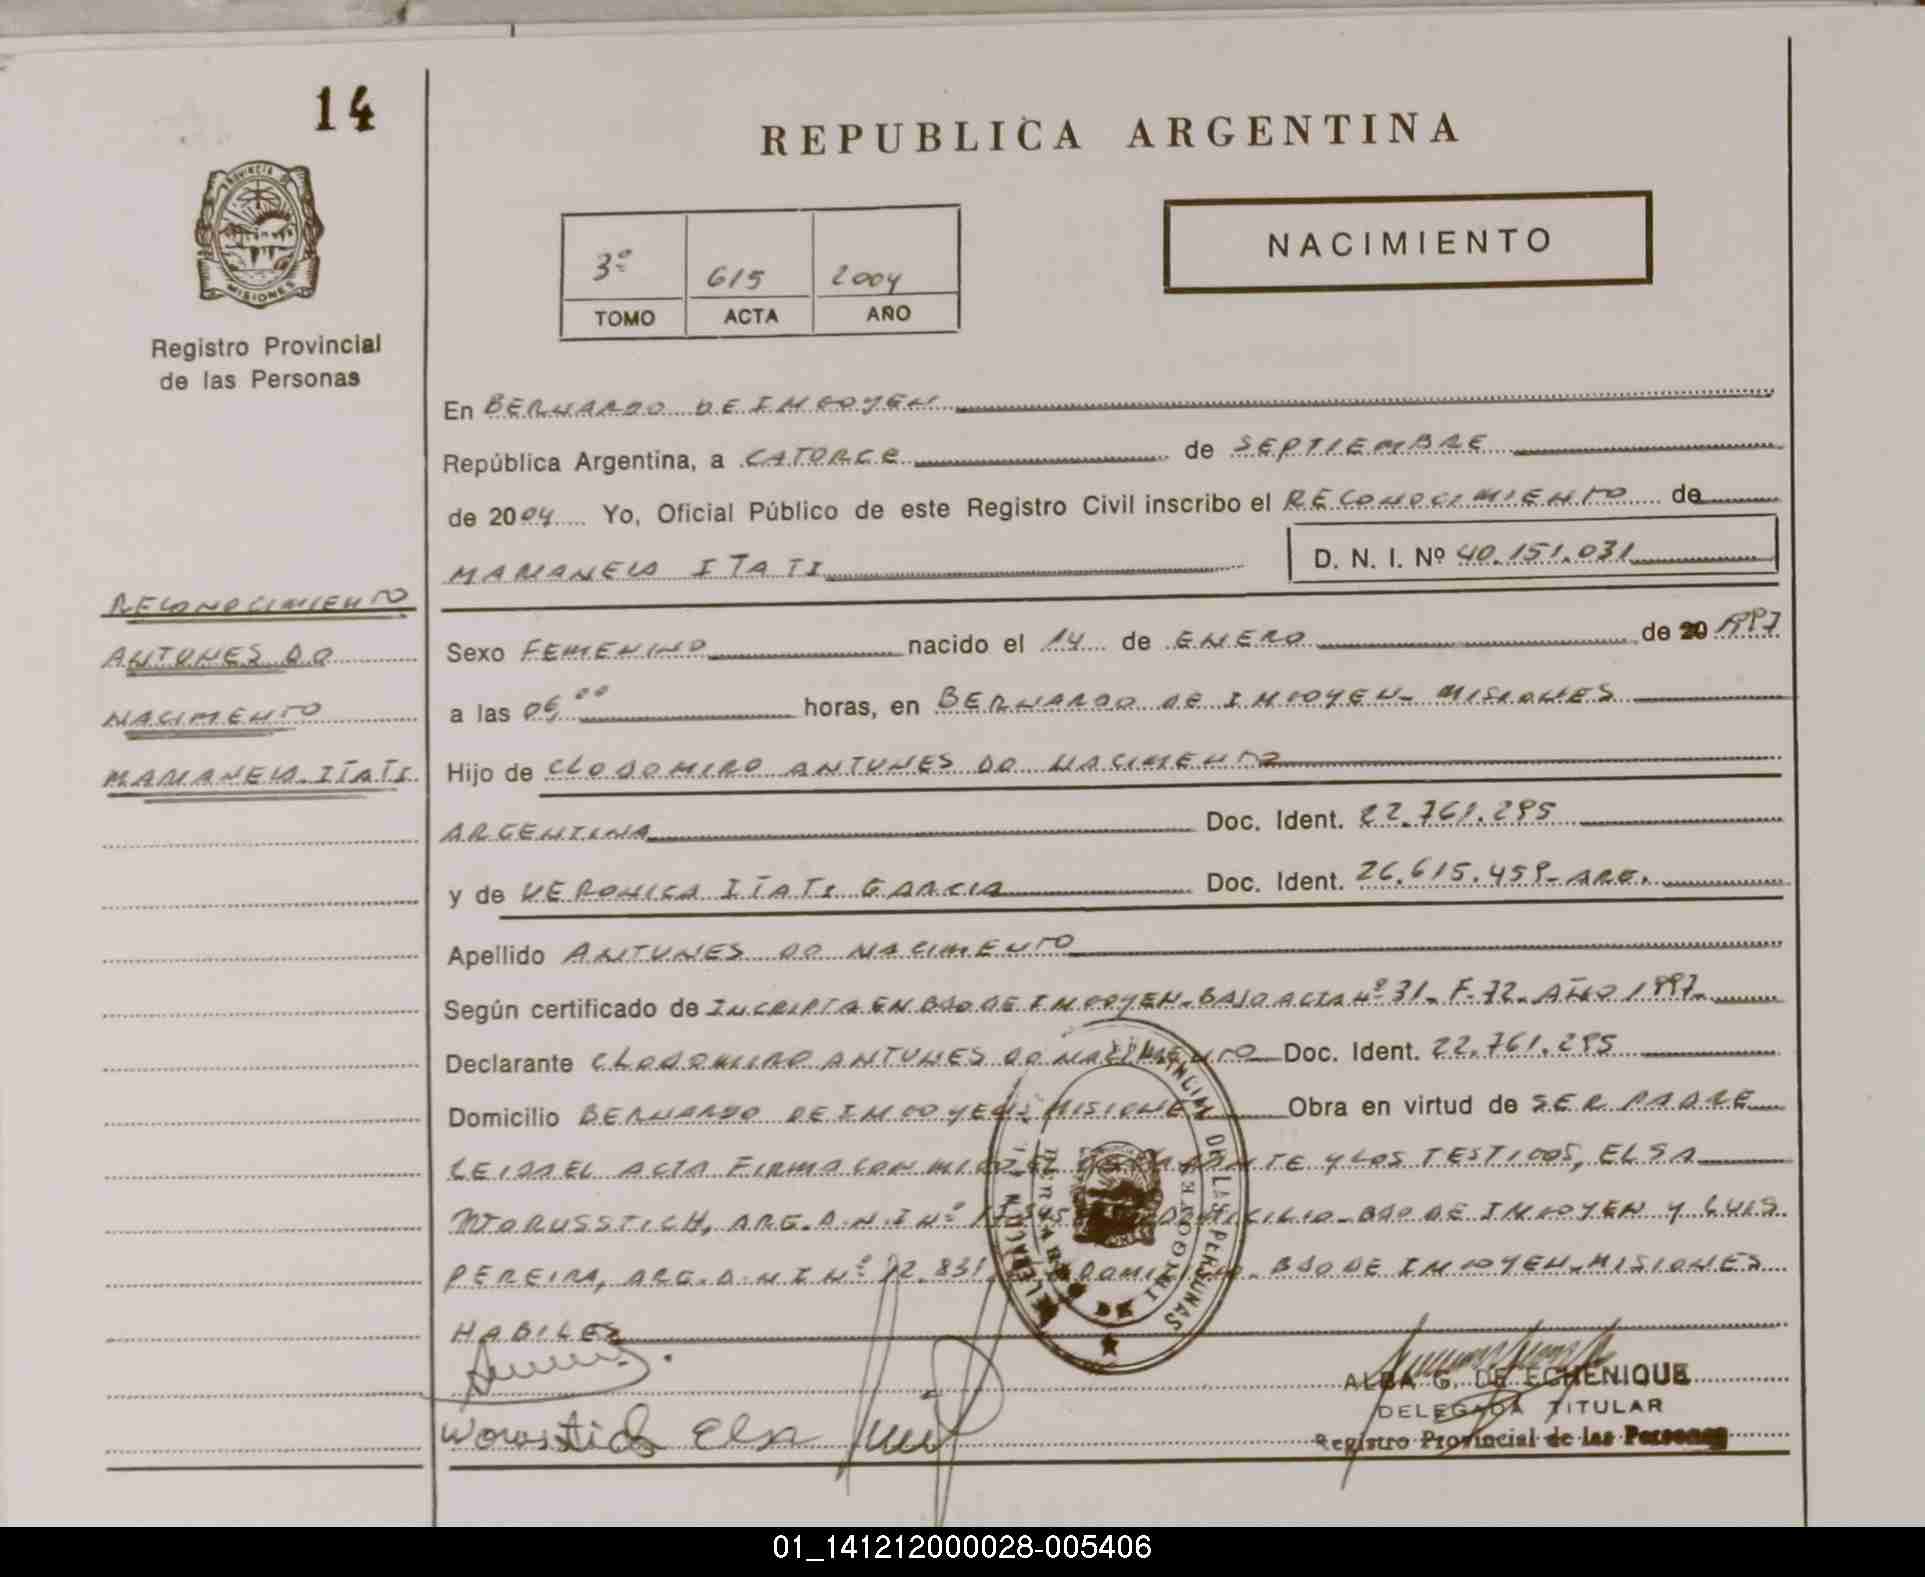 14
REPUBLICA ARGENTINA
PROVINCIA DE
MISIONES
Registro Provincial
de las Personas
3º 615 2004
TOMO ACTA AÑO
NACIMIENTO
En BERNARDO DE IRIGOYEN
República Argentina, a CATORCE de SEPTIEMBRE
de 2004 Yo, Oficial Público de este Registro Civil inscribo el RECONOCIMIENTO de
MARIANELA ITATI D. N. I. Nº 40.151.031
RECONOCIMIENTO
ANTUNES DO
NACIMENTO
MARIANELA ITATI
Sexo FEMENINO nacido el 14 de ENERO de 20 1997
a las 06,00 horas, en BERNARDO DE IRIGOYEN - MISIONES
Hijo de CLODOMIRO ANTUNES DO NACIMENTO
ARGENTINA Doc. Ident. 22.761.295
y de VERONICA ITATI GARCIA Doc. Ident. 26.615.459 - ARG.
Apellido ANTUNES DO NACIMENTO
Según certificado de INCRIPTA EN BDO DE IRIGOYEN - BAJO ACTA Nº 31 - F. 72 - AÑO 1997 -
Declarante CLODOMIRO ANTUNES DO NACIMENTO Doc. Ident. 22.761.295
Domicilio BERNARDO DE IRIGOYEN - MISIONES Obra en virtud de SER PADRE
LEIDA EL ACTA FIRMA CON MIGO EL DECLARANTE Y LOS TESTIGOS, ELSA
WORUSSTICH, ARG. D.N.I Nº DOMICILIO - BDO DE IRIGOYEN Y LUIS
PEREIRA, ARG. D.N.I Nº 12.831 DOMICILIO - BDO DE IRIGOYEN - MISIONES
HABILES
PROVINCIAL DE LAS PERSONAS
BERNARDO DE IRIGOYEN
Worostich Elsa
ALBA G. DE ECHENIQUE
DELEGADA TITULAR
Registro Provincial de las Personas
01_141212000028-005406